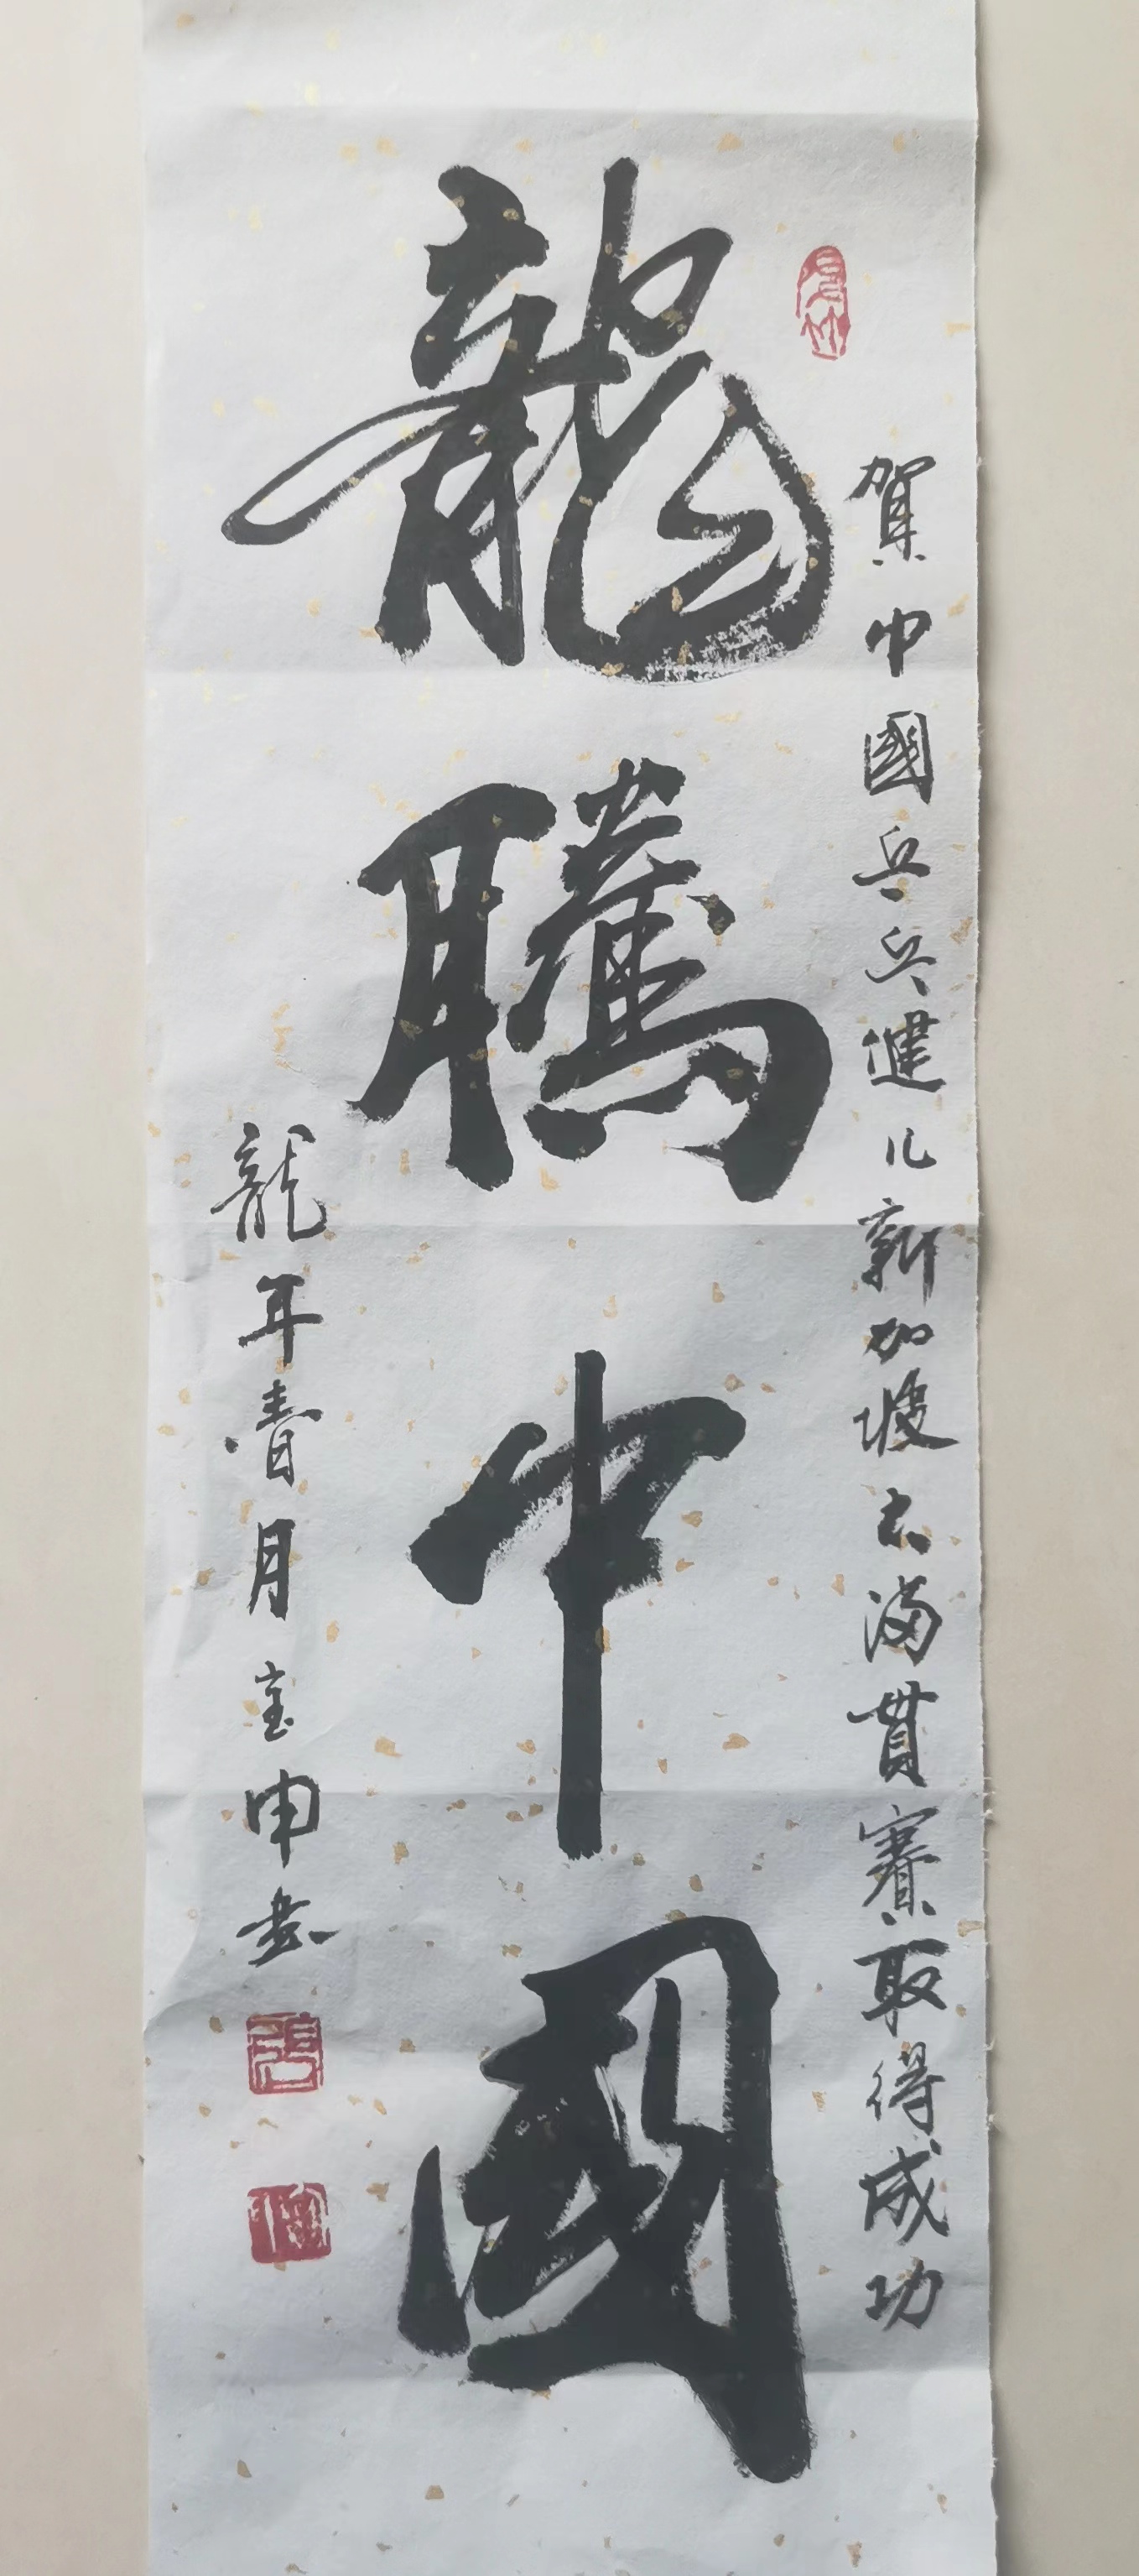 賀中國乒乓健兒新加坡大滿貫賽取得成功
龍騰中國
龍年春月宝申书